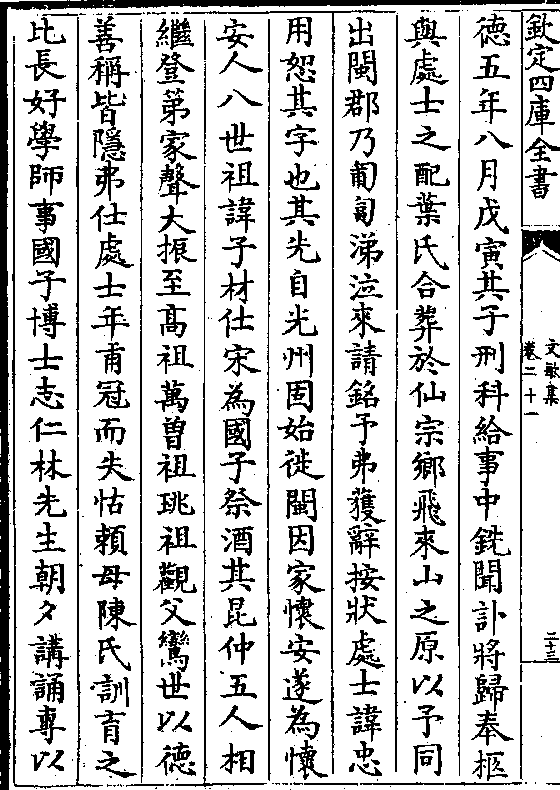 欽定四庫全書
文敏集
卷二十一
二十三
德五年八月戊寅其子刑科給事中銑聞訃將歸奉柩
與處士之配葉氏合葬於仙宗鄉飛來山之原以予同
出閩郡乃匍匐涕泣來請銘予弗獲辭按狀處士諱忠
用恕其字也其先自光州固始徙閩因家懷安遂為懷
安人八世祖諱子材仕宋為國子祭酒其昆仲五人相
繼登第家聲大振至高祖萬曽祖珧祖觀父鸞世以德
善稱皆隱弗仕處士年甫冠而失怙頼母陳氏訓育之
比長好學師事國子博士志仁林先生朝夕講誦專以